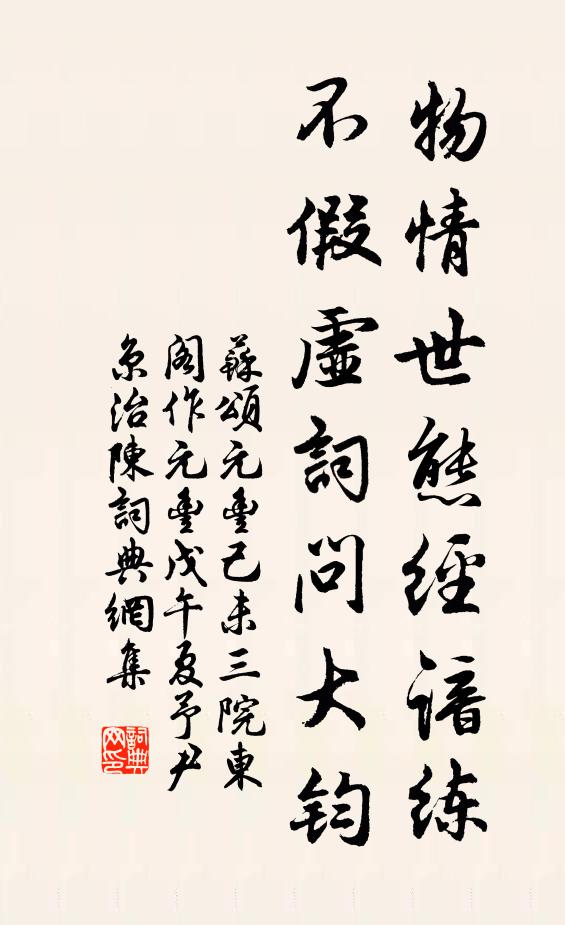 物情世態經諳練
不假虛詞問大鈞
蘇頌元豐己未三院東
閣作元豐戊午夏予尹
京治陳詞典網集
詞典网印